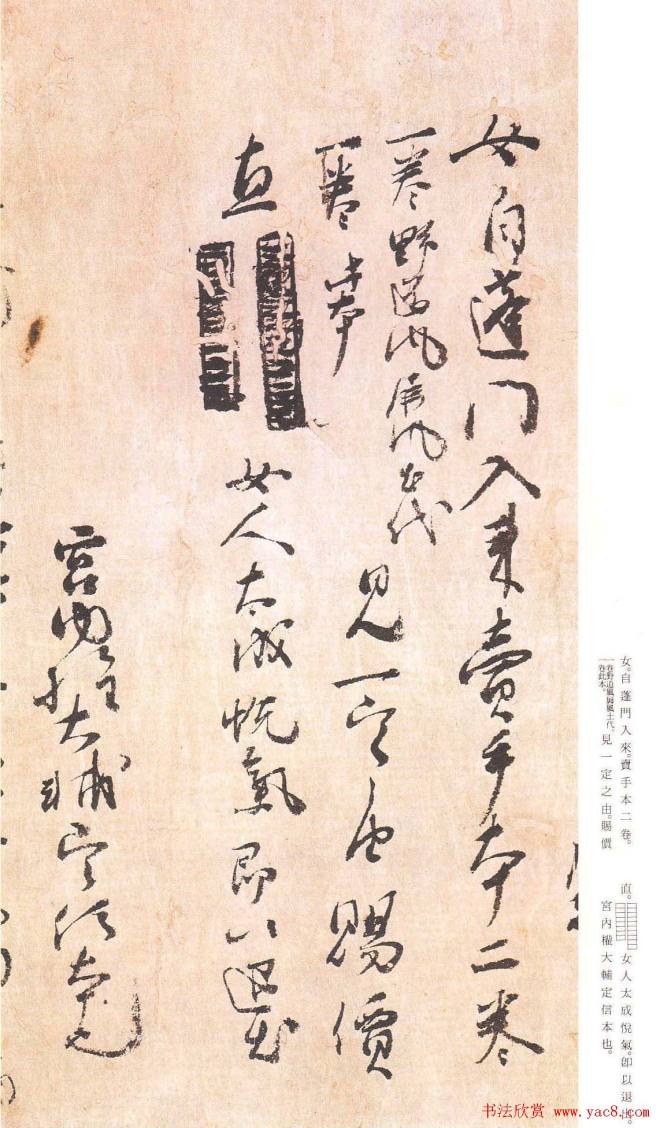 女自蓬門入来賣手本二巻
一巻野道風屏風土代
一巻此本
見一定之由賜價
直
女人太成悦氣即以退出
宮内権大輔定信本也
女。自蓬門入來。賣手本二卷。
一卷野道風屏風土代。
一卷此本。
見一定之由。賜價
直。
女人太成悅氣。卽以退出。
宮內權大輔定信本也。
书法欣赏 www.yac8.com